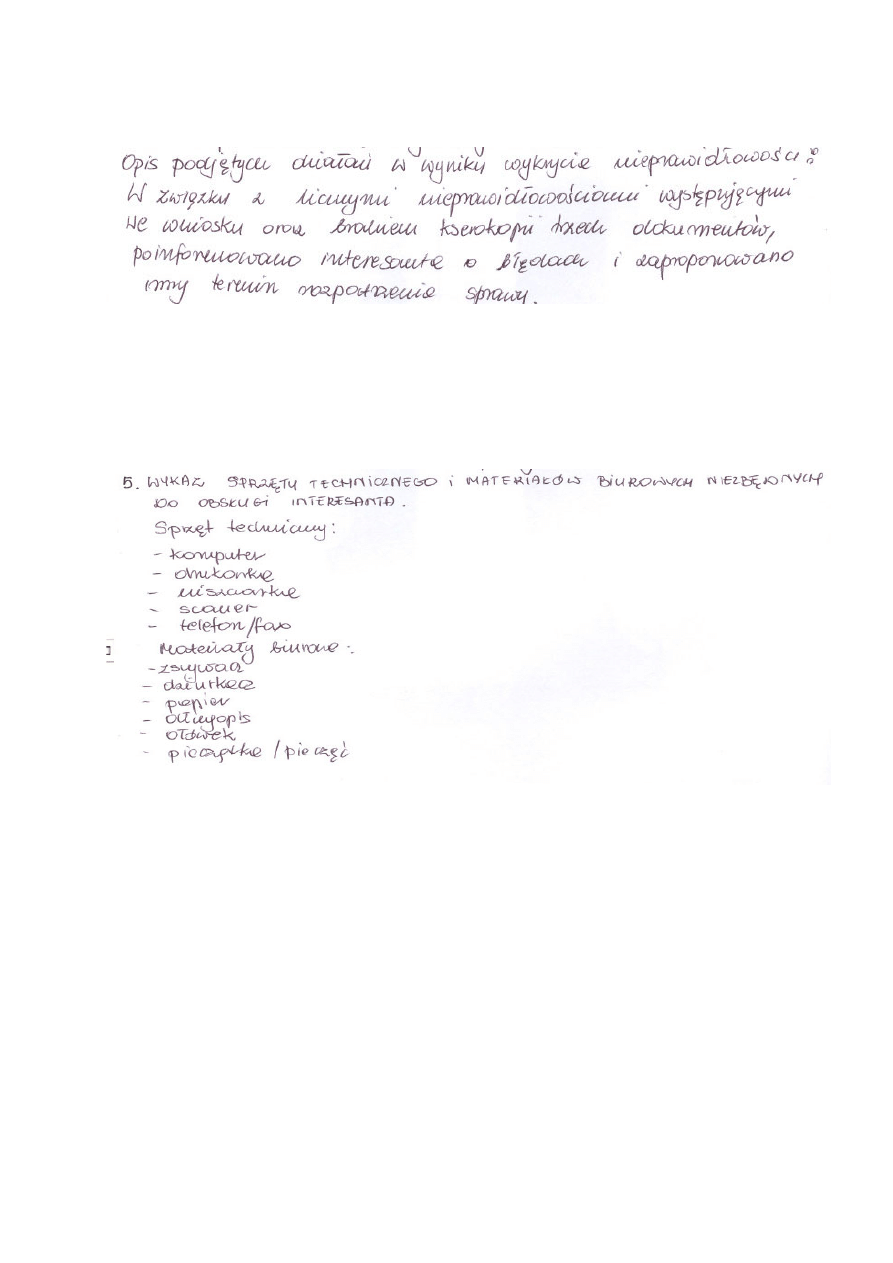 Opis podjętych działań w wyniku wykrycia nieprawidłowości:
W związku z licznymi nieprawidłowościami występującymi
we wniosku oraz brakiem kserokopii trzech dokumentów,
poinformowano interesanta o błędach i zaproponowano
inny termin rozpatrzenia sprawy.
5. WYKAZ SPRZĘTU TECHNICZNEGO i MATERIAŁÓW BIUROWYCH NIEZBĘDNYCH
DO OBSŁUGI INTERESANTA.
Sprzęt techniczny:
- komputer
- drukarka
- niszczarka
- scaner
- telefon/fax
Materiały biurowe:
- zszywacz
- dziurkacz
- papier
- długopis
- ołówek
- pieczątka / pieczęć